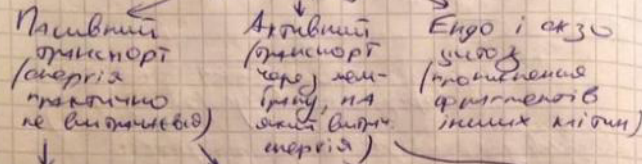 Пасивний
транспорт
(енергія
практично
не витрачається)
Активний
(транспорт
через мем-
брану, на
який витрач.
енергія)
Ендо і екзо
цитоз
(проникнення
фрагментів
інших клітин)